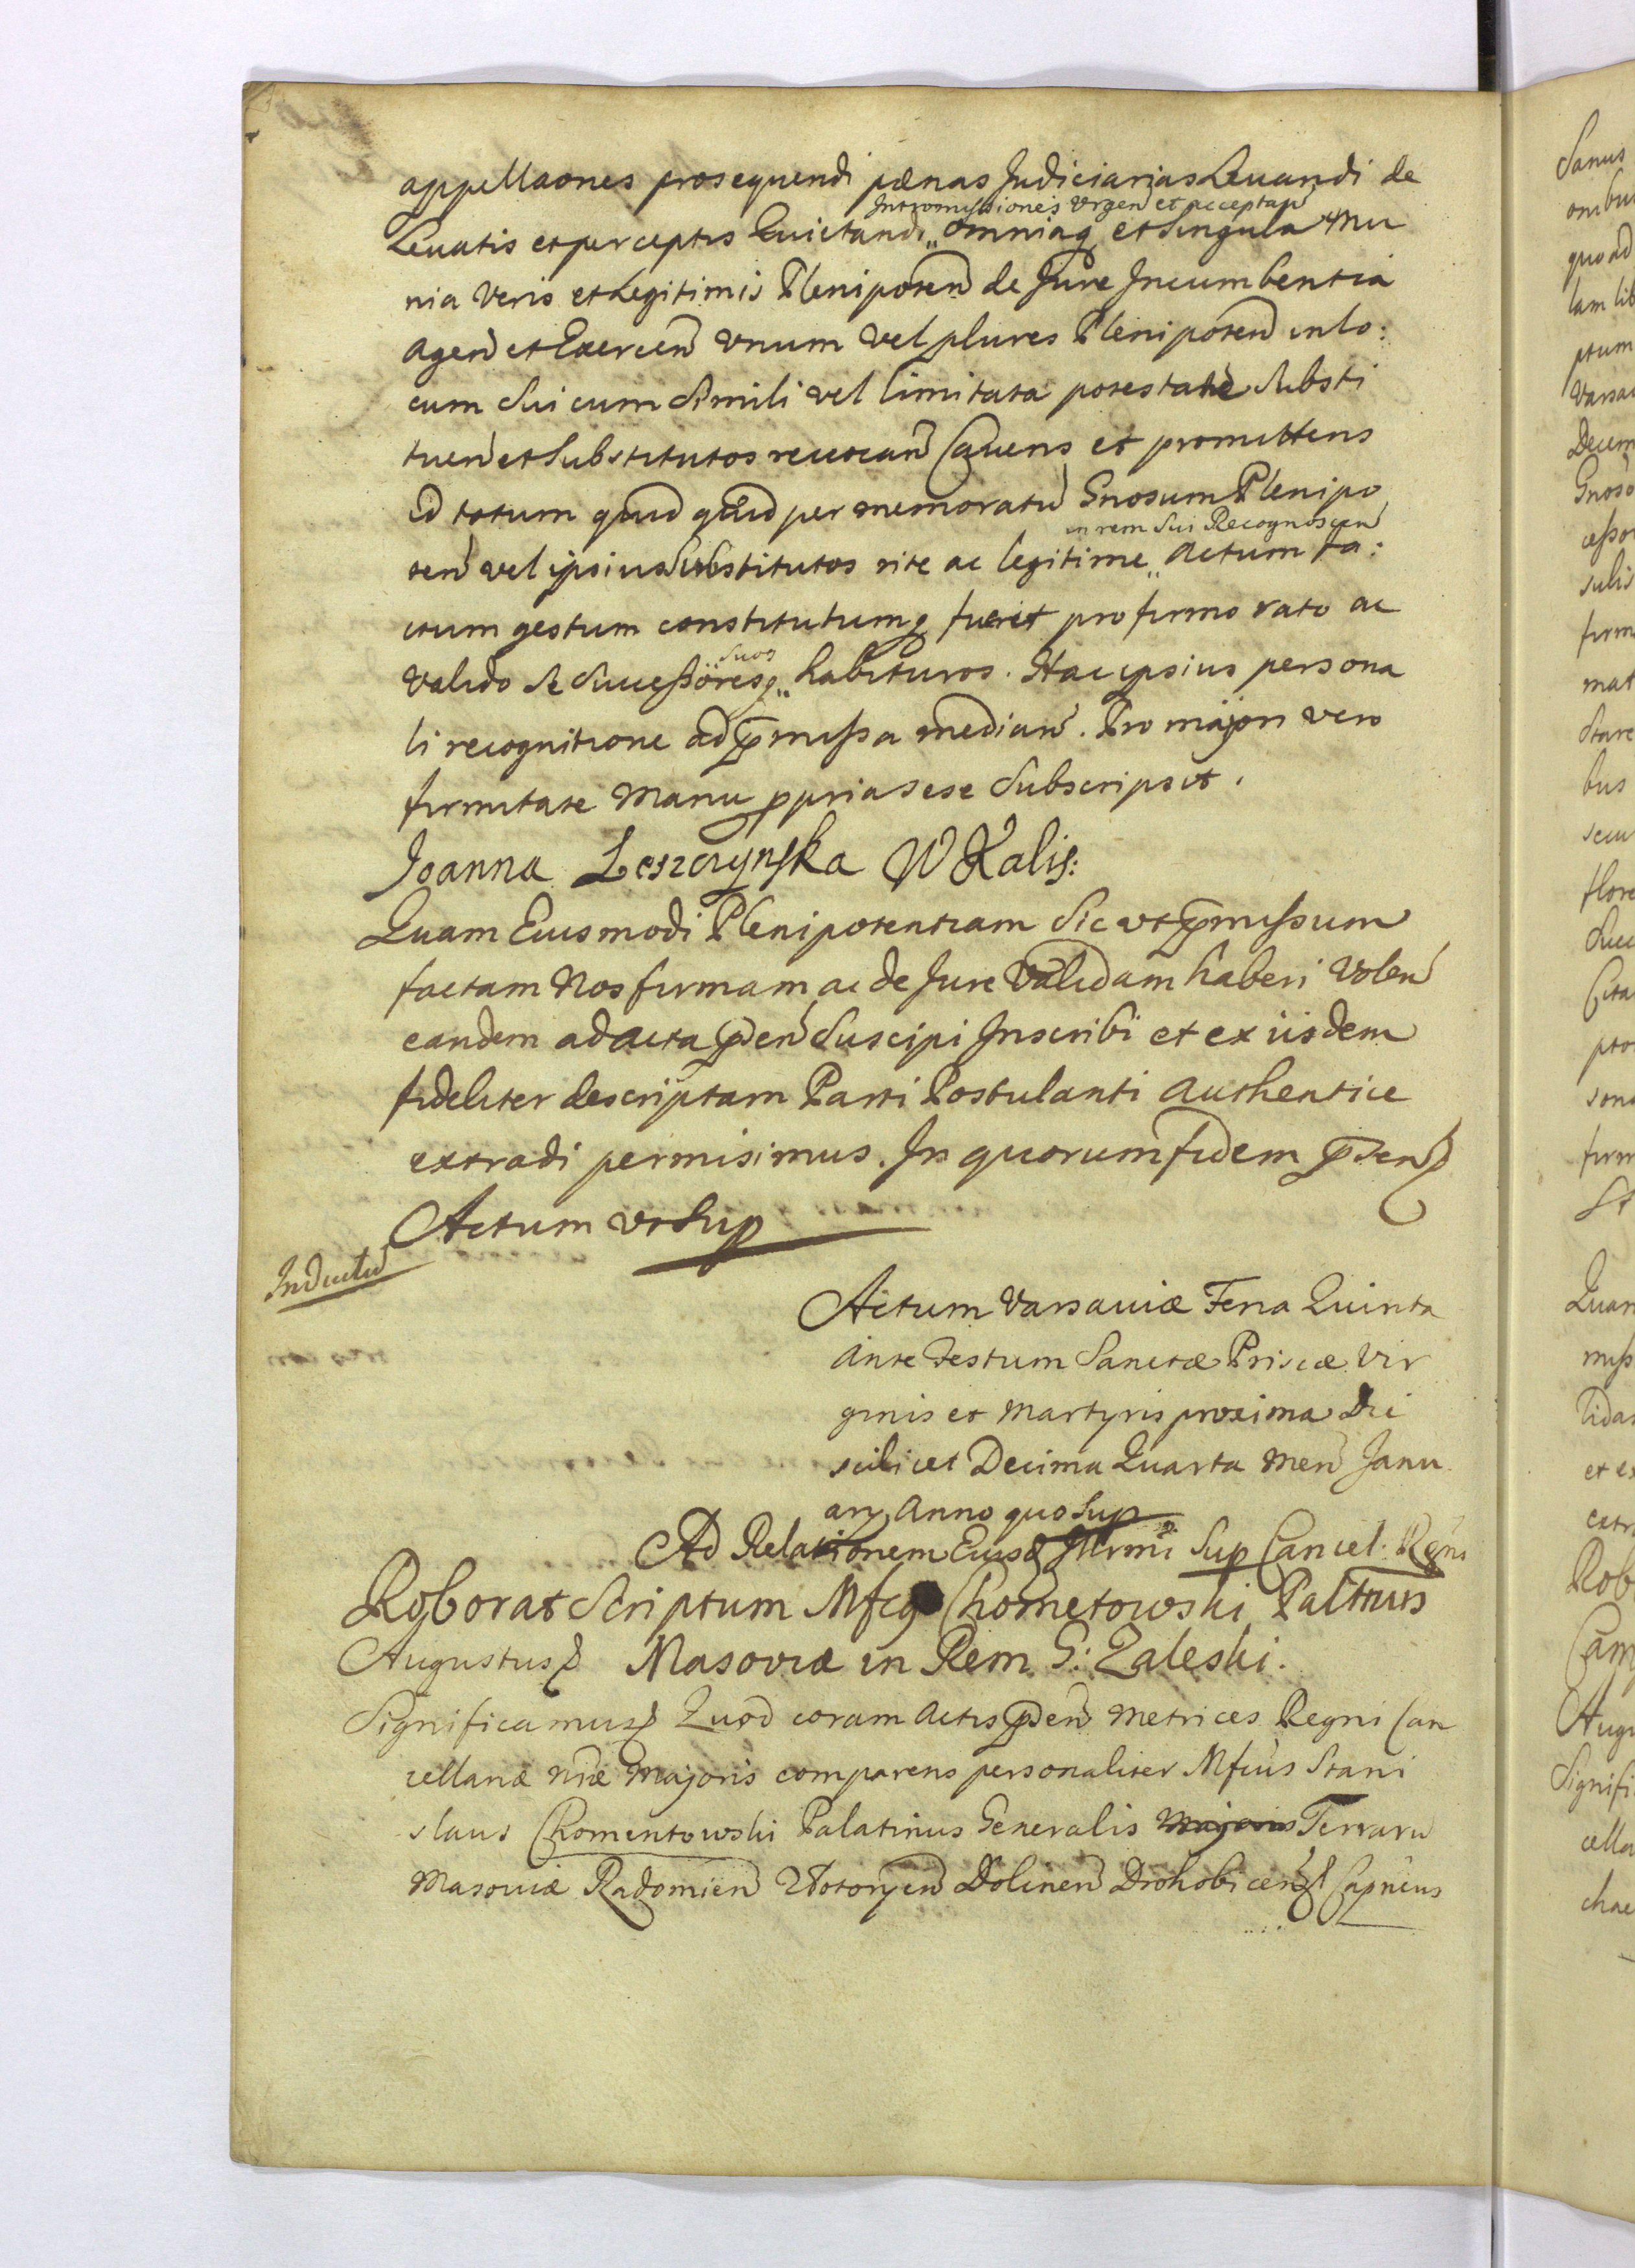 appellaones prosequendi pænas Judiciarias Levandi de
Intromissiones Urgen et acceptan
Levatis et perceptis Quietandi „ omniaq et Singula Mu
nia veris et Legitimis Plenipoten de Jure Incumbentia
agen et Exercen Unum vel plures Plenipoten in lo:
cum Sui cum Simili vel limitata potestate Substi
tuen et Substitutos revocan Cavens et promittens
id totum quid quid per memoratu Gnosum Plenipo
in rem Sui Recognoscen
ten vel ipsius Substitutos rite ac legitime „ actum fa:
ctum gestum constitutumq fuerit pro firmo rato ac
suos
valido Se Successoresq „ habituros. Hac ipsius persona
li recognitione ad pmissa median. Pro majori vero
firmitate Manu ppria sese Subscripsit.
Joanna Leszczynska W Kalis:
Quam Eiusmodi Plenipotentiam Sic ut pmissum
factam Nos firmam ac de Jure validam haberi Volen
eandem ad acta pden Suscipi Inscribi et ex iisdem
fideliter descriptam Parti Postulanti authentice
extradi permisimus. In quorum fidem psen
Actum ut Sup
Inductu
Actum Varsaviæ Feria Quinta
Ante Festum Sanctæ Priscæ Vir
ginis et Martyris proxima Die
scilicet Decima Quarta Men Janu
arij Anno quo Sup
Ad Relationem Eiusd Illrmi Sup Cancel. Regni
Roborat Scriptum Mfcq Chometowski Paltnus
Augustus Masoviæ in Rem G: Zaleski.
Significamus Quod coram Actis pden Metrices Regni Can
cellariæ Nræ Majoris comparens personaliter Mfcus Stani
slaus Chomentowski Palatinus Generalis Majoris Terraru
Masoviæ Radomien Dolinen Drohobicen Capneus
Sanus
onibu
quoad
lam lib
ptum
Varsav
Decem
Gnoso
cessor
sulis
firm
mat
Stare
bus
secu
flore
Succ
Cita
pto
sona
firm
Quam
miss
lidam
et ex
extr
Rob
Cam
Augu
Signifi
cella
chae